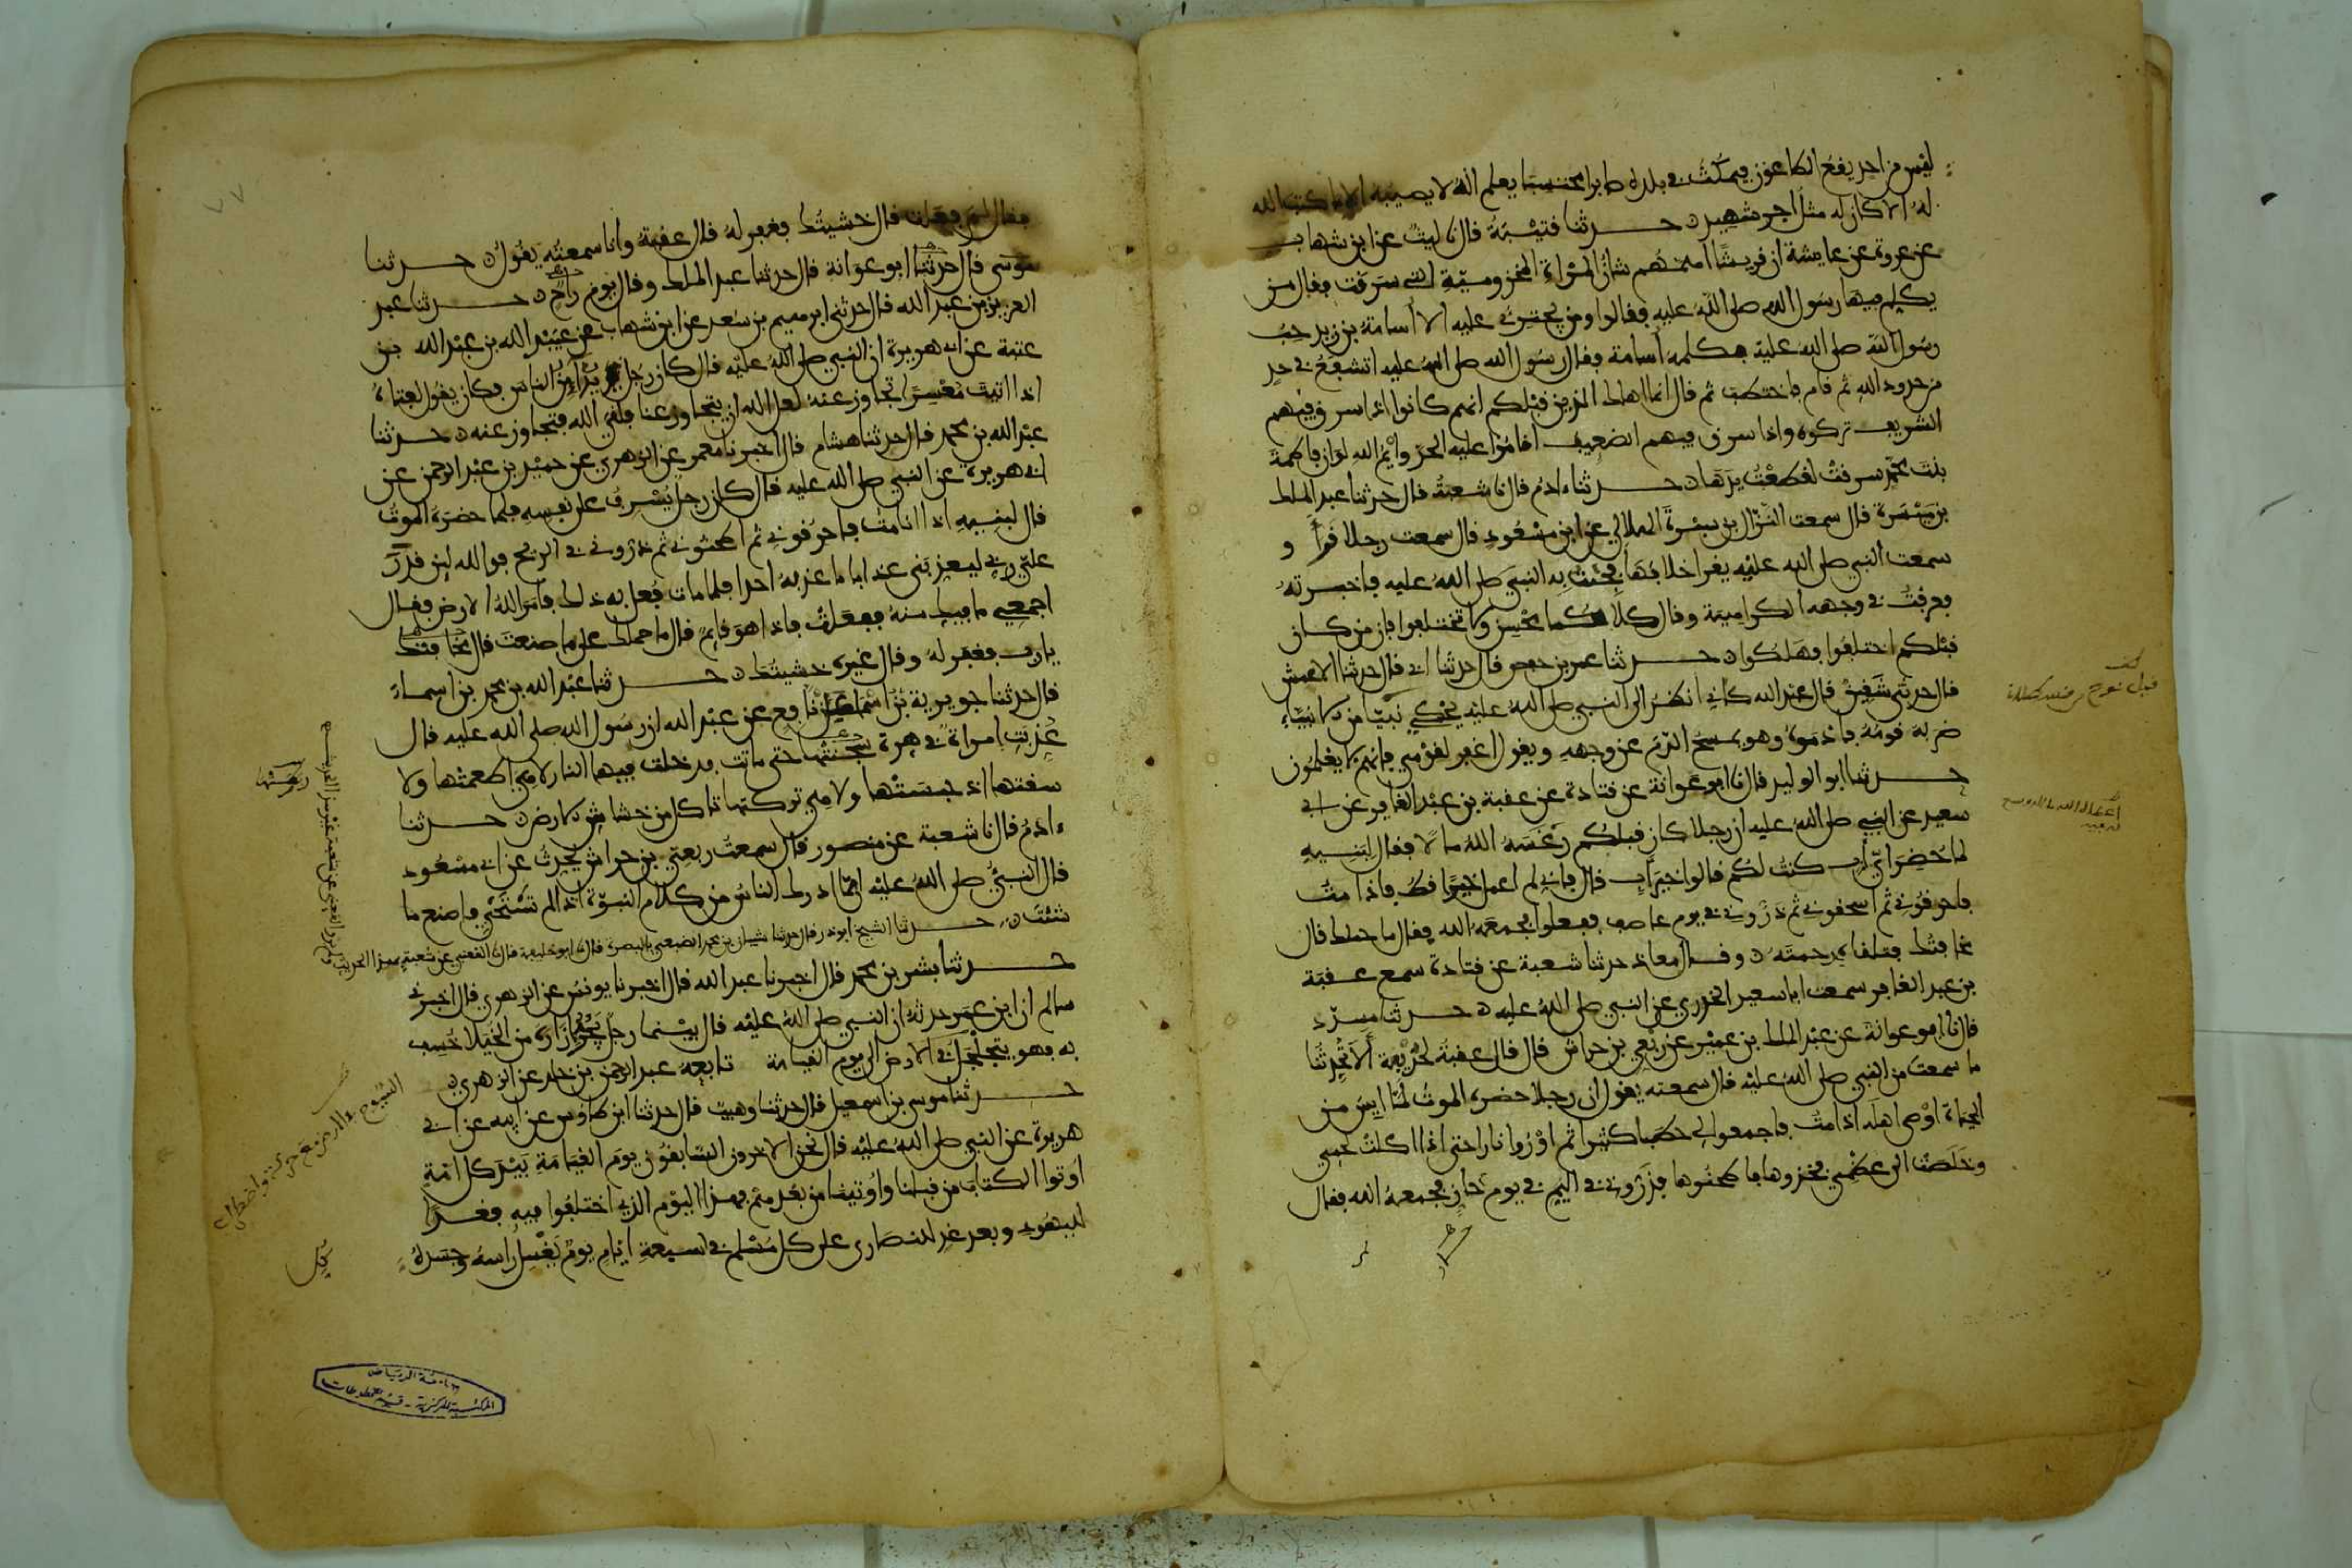 ليس من احد يقع الطاعون فيمكث في بلده صابرا محتسبا يعلم انه لا يصيبه الا ما كتب الله
له الا كان له مثل اجر شهيد حدثنا قتيبة قال نا ليث عن ابن شهاب
عن عروة عن عايشة ان قريشا اهمهم شان المراة المخزومية التي سرقت فقال من
يكلم فيها رسول الله صلى الله عليه فقالوا ومن يجترئ عليه الا اسامة بن زيد حب
رسول الله صلى الله عليه فكلمه اسامة فقال رسول الله صلى الله عليه اتشفع في حد
من حدود الله ثم قام فاختطب ثم قال انما اهلك الذين قبلكم انهم كانوا اذا سرق فيهم
الشريف تركوه واذا سرق فيهم الضعيف اقاموا عليه الحد وايم الله لو ان فاطمة
بنت محمد سرقت لقطعت يدها حدثنا ءادم قال نا شعبة قال حدثنا عبد الملك
بن ميسرة قال سمعت النزال بن سبرة الهلالي عن ابن مسعود قال سمعت رجلا قرا و
سمعت النبي صلى الله عليه يقرا خلافها فجئت به النبي صلى الله عليه فاخبرته
فعرفت في وجهه الكراهية وقال كلاكما محسن ولا تختلفوا فان من كان
قبلكم اختلفوا فهلكوا حدثنا عمر بن حفص قال حدثنا ابي قال حدثنا الاعمش
قال حدثني شقيق قال عبد الله كاني انظر الى النبي صلى الله عليه يحكي نبيا من الانبياء
ضربه قومه فادموه وهو يمسح الدم عن وجهه ويقول اغفر لقومي فانهم لا يعلمون
حدثنا ابو الوليد قال نا ابو عوانة عن قتادة عن عقبة بن عبد الغافر عن ابي
سعيد عن النبي صلى الله عليه ان رجلا كان قبلكم رغسه الله مالا فقال لبنيه
لما حضر اي اب كنت لكم قالوا خير اب قال فاني لم اعمل خيرا قط فاذا مت
فاحرقوني ثم اسحقوني ثم ذروني في يوم عاصف ففعلوا فجمعه الله فقال ما حملك قال
مخافتك فتلقاه برحمته وقال معاذ حدثنا شعبة عن قتادة سمع عقبة
بن عبد الغافر سمعت ابا سعيد الخدري عن النبي صلى الله عليه حدثنا مسدد
قال نا ابو عوانة عن عبد الملك بن عمير عن ربعي بن حراش قال قال عقبة لحذيفة الا تحدثنا
ما سمعت من النبي صلى الله عليه قال سمعته يقول ان رجلا حضره الموت لما ايس من
الحياة اوصى اهله اذا مت فاجمعوا لي حطبا كثيرا ثم اوروا نارا حتى اذا اكلت لحمي
وخلصت الى عظمي فخذوها فاطحنوها فذروني في اليم في يوم حار فجمعه الله فقال
فقال لم فعلت قال خشيتك فغفر له قال عقبة وانا سمعته يقول حدثنا
موسى قال حدثنا ابو عوانة قال حدثنا عبد الملك وقال يوم راح حدثنا عبد
العزيز بن عبد الله قال حدثني ابرهيم بن سعد عن ابن شهاب عن عبيد الله بن عبد الله بن
عتبة عن ابي هريرة ان النبي صلى الله عليه قال كان رجل يداين الناس فكان يقول لفتاه
اذا اتيت معسرا تجاوز عنه لعل الله ان يتجاوز عنا فلقي الله فتجاوز عنه حدثنا
عبد الله بن محمد قال حدثنا هشام قال اخبرنا معمر عن الزهري عن حميد بن عبد الرحمن عن
ابي هريرة عن النبي صلى الله عليه قال كان رجل يسرف على نفسه فلما حضره الموت
قال لبنيه اذا انا مت فاحرقوني ثم اطحنوني ثم ذروني في الريح فوالله لين قدر
علي ربي ليعذبني عذابا ما عذبه احدا فلما مات فعل به ذلك فامر الله الارض فقال
اجمعي ما فيك منه ففعلت فاذا هو قايم قال ما حملك على ما صنعت قال مخافتك
يا رب فغفر له وقال غيره خشيتك حدثنا عبد الله بن محمد بن اسماء
قال حدثنا جويرية بن اسماء عن نافع عن عبد الله ان رسول الله صلى الله عليه قال
عذبت امراة في هرة سجنتها حتى ماتت فدخلت فيها النار لا هي اطعمتها ولا
سقتها اذ حبستها ولا هي تركتها تاكل من خشاش الارض حدثنا
ءادم قال نا شعبة عن منصور قال سمعت ربعي بن حراش يحدث عن ابي مسعود
قال النبي صلى الله عليه ان مما ادرك الناس من كلام النبوة اذا لم تستحي فاصنع ما
شئت حدثنا الشيخ ابو ذر قال حدثنا شيبان بن محمد الضبعي بالبصرة قال نا ابو خليفة قال نا القعنبي عن شعبة بهذا الحديث
حدثنا بشر بن محمد قال اخبرنا عبد الله قال اخبرنا يونس عن الزهري قال اخبرني
سالم ان ابن عمر حدثه ان النبي صلى الله عليه قال بينما رجل يجر ازاره من الخيلا خسف
به فهو يتجلجل في الارض الى يوم القيامة تابعه عبد الرحمن بن خلد عن الزهري
حدثنا موسى بن اسمعيل قال حدثنا وهيب قال حدثنا ابن طاوس عن ابيه عن ابي
هريرة عن النبي صلى الله عليه قال نحن الاخرون السابقون يوم القيامة بيد كل امة
اوتوا الكتاب من قبلنا واوتينا من بعدهم فهذا اليوم الذي اختلفوا فيه فغدا
لليهود وبعد غد للنصارى على كل مسلم في سبعة ايام يوم يغسل راسه وجسده
جامعة الرياض
المكتبة المركزية - قسم المخطوطات